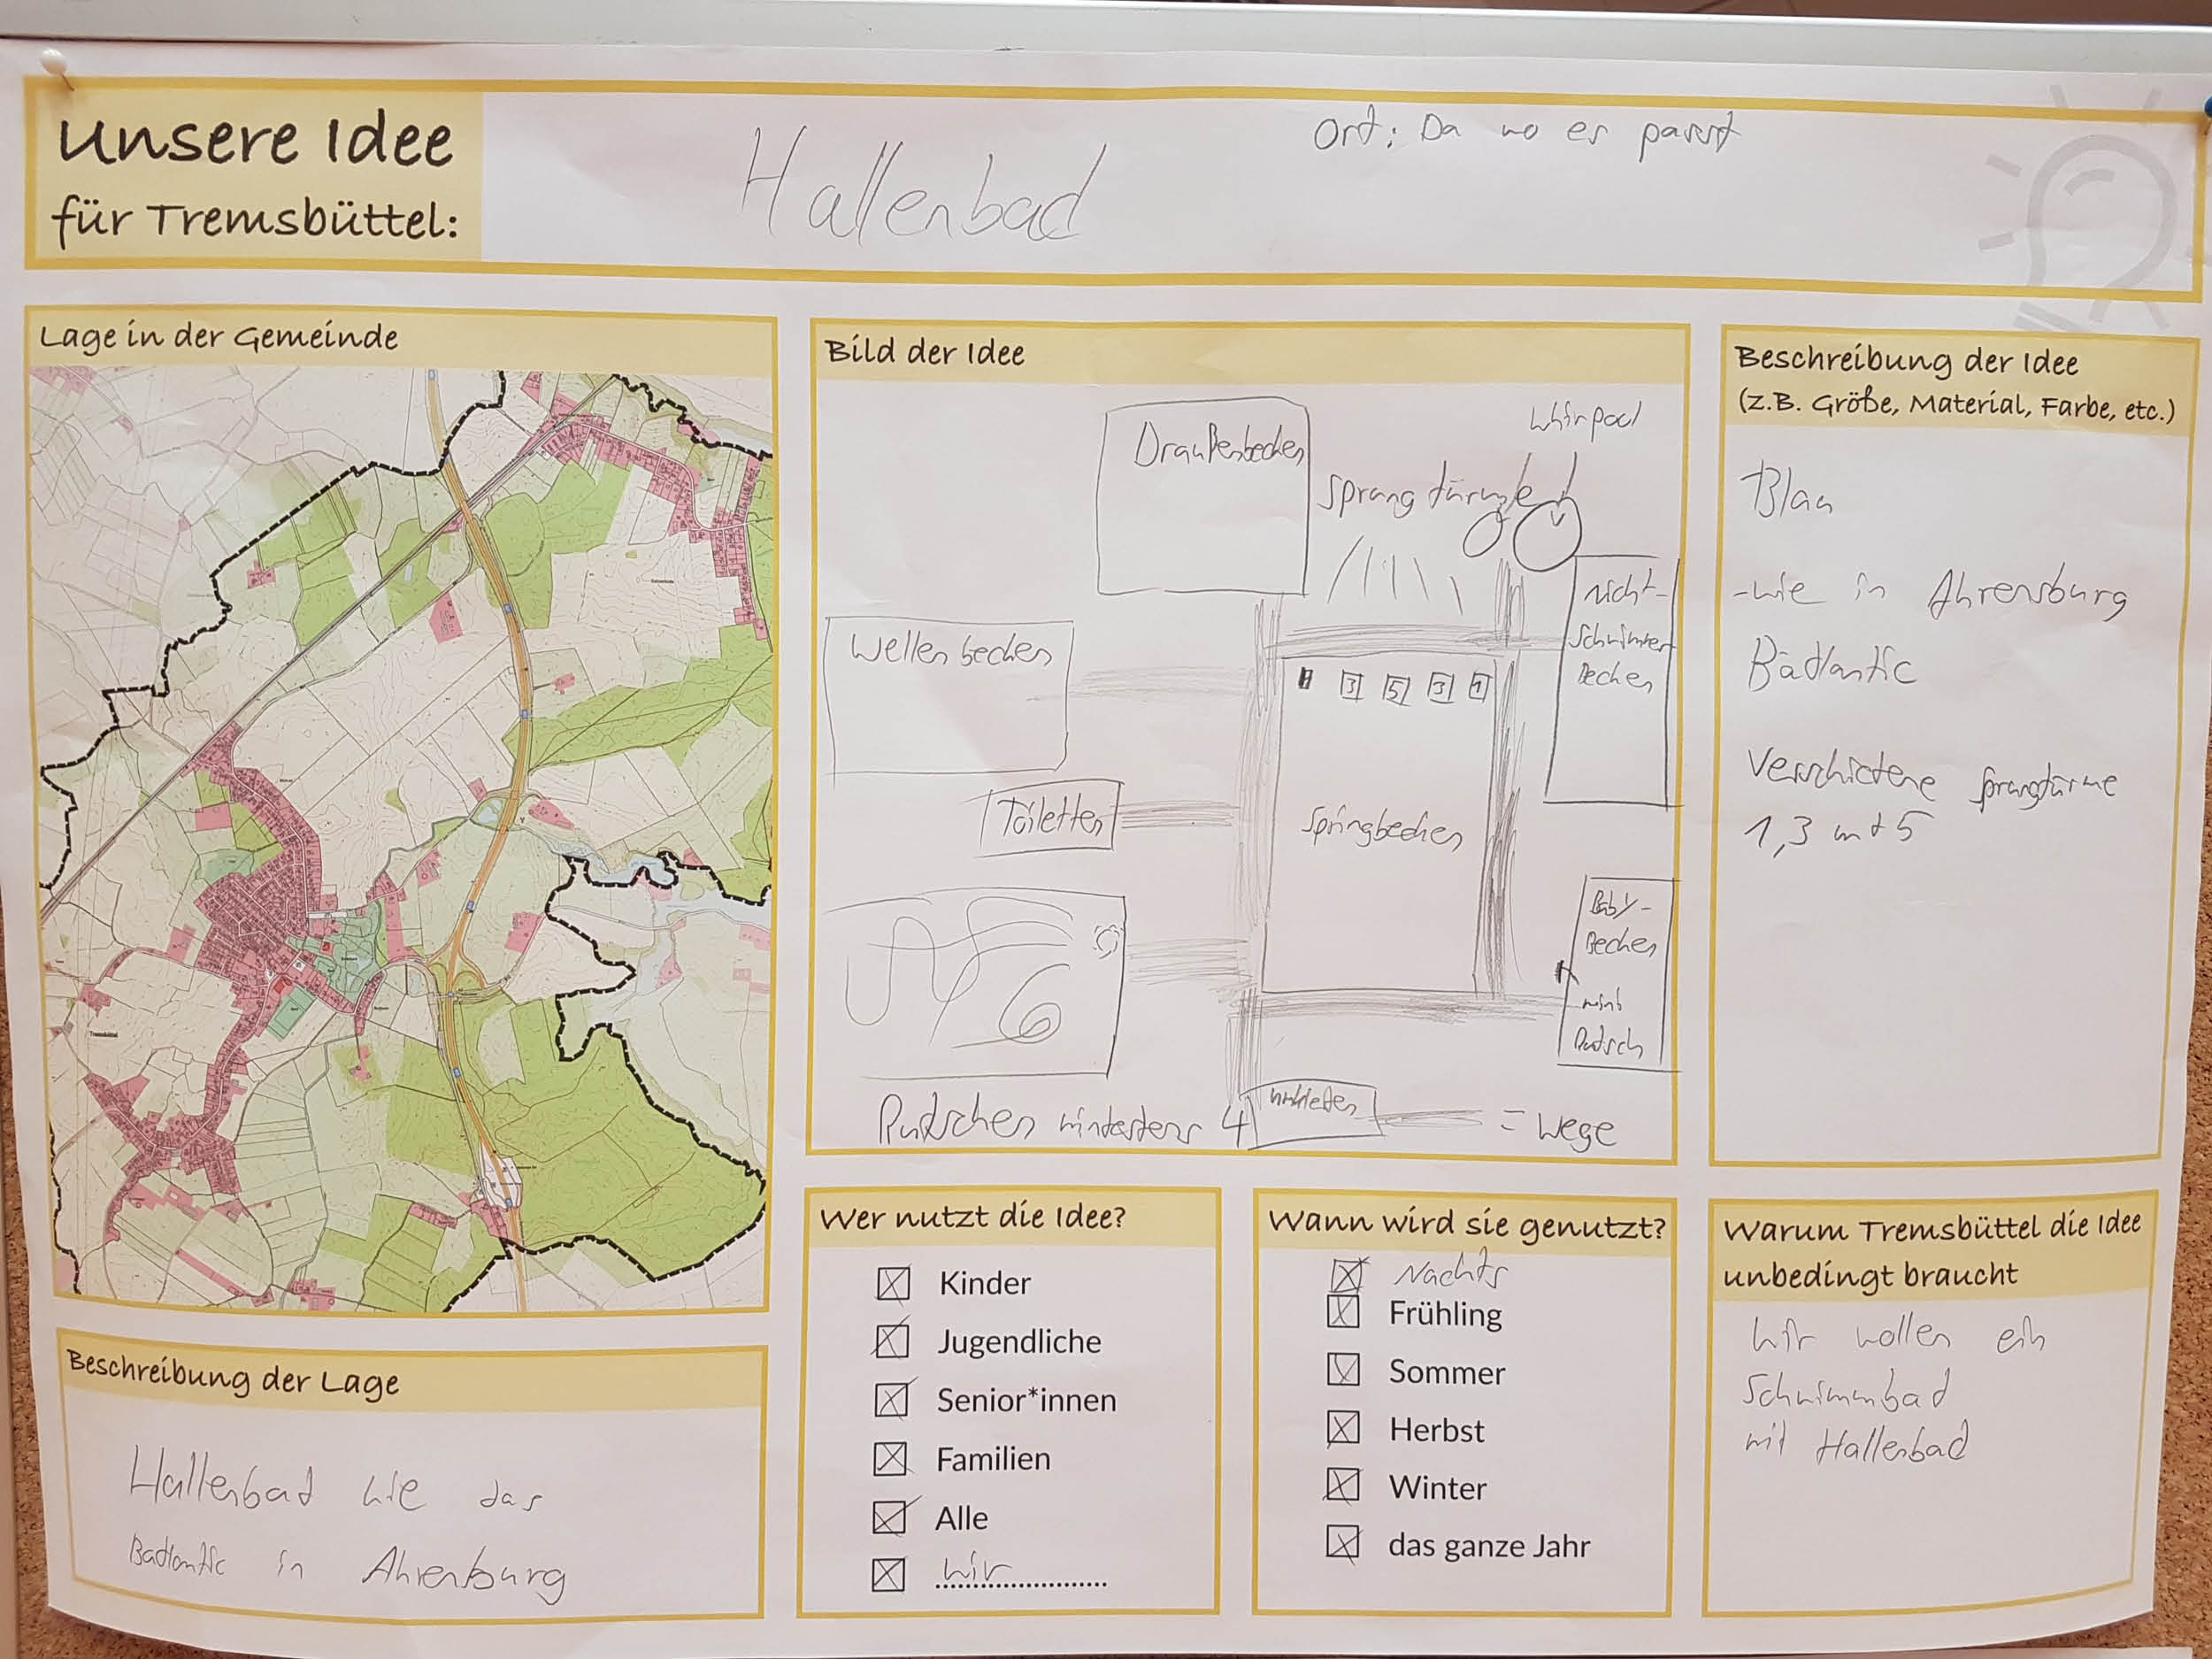 Unsere Idee
für Tremsbüttel:
Hallenbad
Ort: Da wo es passt
Lage in der Gemeinde
Beschreibung der Lage
Hallenbad wie das
Badlantic in Ahrenburg
Bild der Idee
Draußenbecken
Whirpool
Sprungtürme
Wellenbecken
nicht-
schwimmer
Becken
3 5 3 1
Toiletten
Springbecken
Baby-
Becken
mini
Rutsch
Rutschen mindestens 4
umkleiden
= Wege
Beschreibung der Idee
(z.B. Größe, Material, Farbe, etc.)
Blau
-wie in Ahrensburg
Badlantic
Verschietene Sprungtürme
1,3 und 5
Wer nutzt die Idee?
Kinder
Jugendliche
Senior*innen
Familien
Alle
wir
Wann wird sie genutzt?
Nachts
Frühling
Sommer
Herbst
Winter
das ganze Jahr
Warum Tremsbüttel die Idee
unbedingt braucht
Wir wollen ein
Schwimmbad
mit Hallenbad